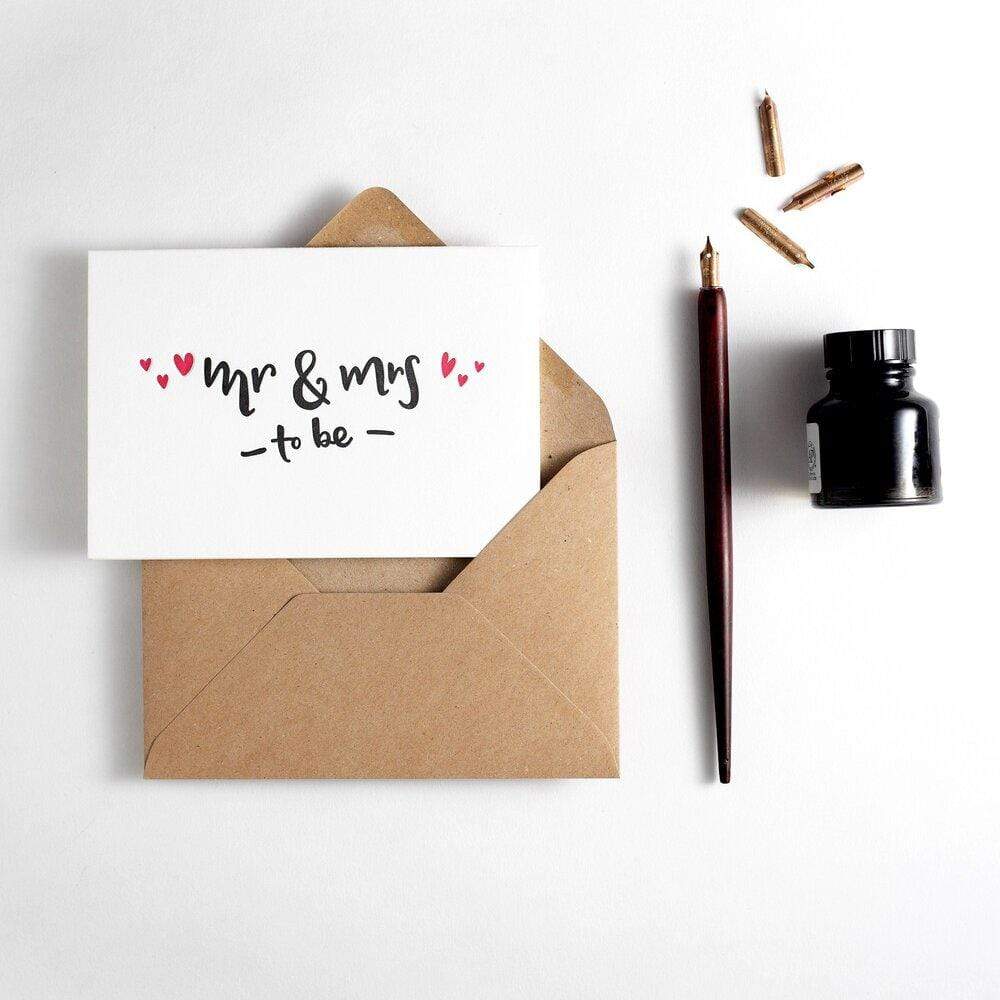 mr & mrs
- to be -